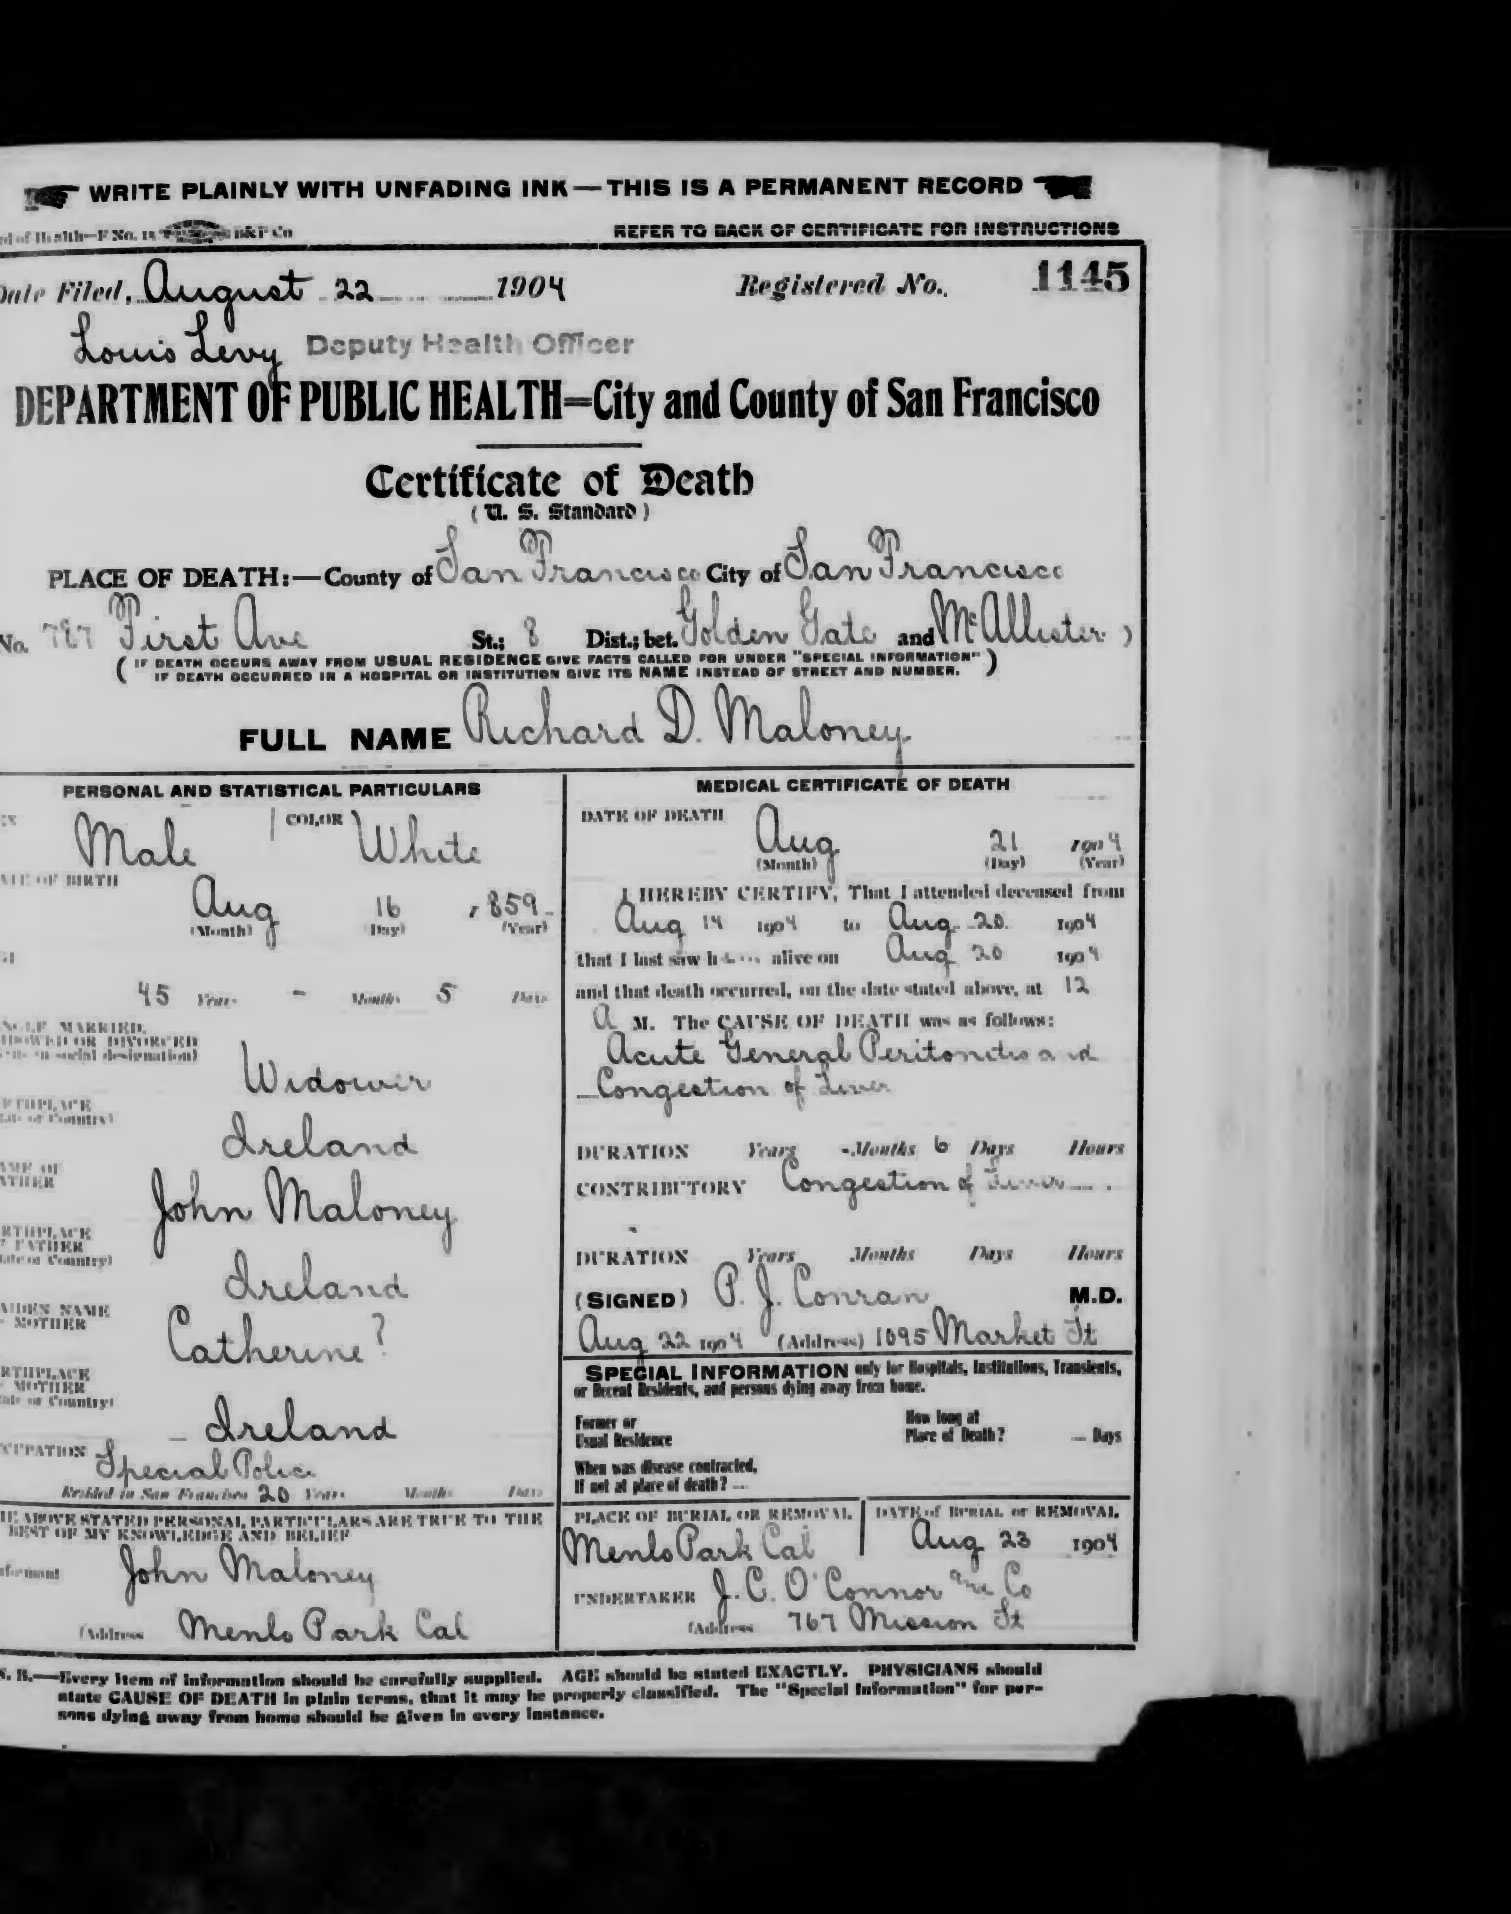 WRITE PLAINLY WITH UNFADING INK—THIS IS A PERMANENT RECORD
d of Health—F No. 15 B&P Co REFER TO BACK OF CERTIFICATE FOR INSTRUCTIONS
Date Filed, August 22 1904 Registered No. 1145
Louis Levy Deputy Health Officer
DEPARTMENT OF PUBLIC HEALTH=City and County of San Francisco
Certificate of Death
(U. S. Standard)
PLACE OF DEATH:—County of San Francisco City of San Francisco
No. 787 First Ave St.; 8 Dist.; bet. Golden Gate and McAllister )
( IF DEATH OCCURS AWAY FROM USUAL RESIDENCE GIVE FACTS CALLED FOR UNDER "SPECIAL INFORMATION" )
IF DEATH OCCURRED IN A HOSPITAL OR INSTITUTION GIVE ITS NAME INSTEAD OF STREET AND NUMBER.
FULL NAME Richard D. Maloney
PERSONAL AND STATISTICAL PARTICULARS
EX Male COLOR White
ATE OF BIRTH
Aug 16 , 859
(Month) (Day) (Year)
45 Years - Months 5 Days
NGLE MARRIED,
IDOWED OR DIVORCED
in social designation)
Widower
RTHPLACE
ate or Country)
Ireland
AME OF
ATHER
John Maloney
RTHPLACE
F FATHER
tate or Country)
Ireland
AIDEN NAME
MOTHER
Catherine ?
RTHPLACE
MOTHER
ate or Country)
Ireland
CCUPATION Special Police
Resided in San Francisco 20 Years Months Days
HE ABOVE STATED PERSONAL PARTICULARS ARE TRUE TO THE
BEST OF MY KNOWLEDGE AND BELIEF
nformant John Maloney
(Address Menlo Park Cal
MEDICAL CERTIFICATE OF DEATH
DATE OF DEATH
Aug 21 1904
(Month) (Day) (Year)
I HEREBY CERTIFY, That I attended deceased from
Aug 14 1904 to Aug. 20. 1904
that I last saw him alive on Aug 20 1904
and that death occurred, on the date stated above, at 12
A M. The CAUSE OF DEATH was as follows:
Acute General Peritonitis and
Congestion of Liver
DURATION Years - Months 6 Days Hours
CONTRIBUTORY Congestion of Liver
DURATION Years Months Days Hours
(SIGNED) P. J. Conran M.D.
Aug 22 1904 (Address) 1095 Market St
SPECIAL INFORMATION only for Hospitals, Institutions, Transients,
or Recent Residents, and persons dying away from home.
Former or
Usual Residence
How long at
Place of Death? Days
When was disease contracted,
If not at place of death?
PLACE OF BURIAL OR REMOVAL DATE of BURIAL or REMOVAL
Menlo Park Cal Aug 23 1904
UNDERTAKER J. C. O'Connor Co
(Address 767 Mission St
N. B.—Every item of information should be carefully supplied. AGE should be stated EXACTLY. PHYSICIANS should
state CAUSE OF DEATH in plain terms, that it may be properly classified. The "Special Information" for per-
sons dying away from home should be given in every instance.